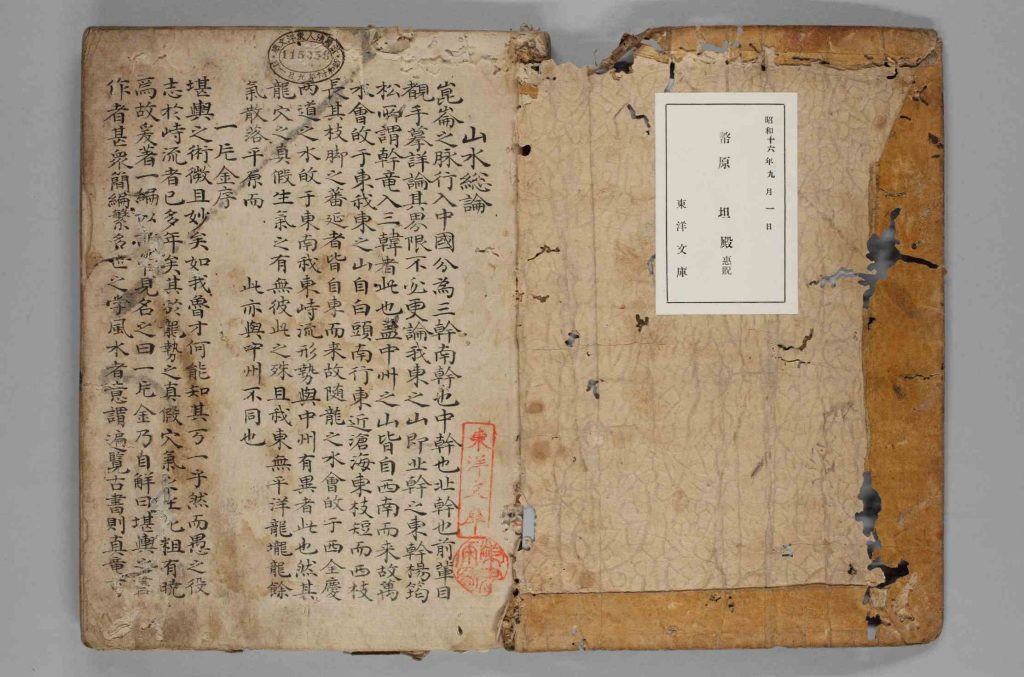 昭和十六年九月一日
幣原 坦殿 惠貺
東洋文庫
山水総論
崑崙之脉行入中國分為三幹南幹也中幹也北幹也前輩目
覩手摹詳論其界限不必更論我東之山即北幹之東幹楊筠
松所謂幹竜入三韓者此也蓋中州之山皆自西南而来故萬
水會敀于東我東之山自白頭南行東近滄海東枝短而西枝
長其枝脚之蕃延者皆自東而来故随龍之水會敀于西全慶
両道之水敀于東南我東峙流形勢與中州有異者此也然其
龍穴之真假生氣之有無彼此之殊且我東無平洋龍壠龍餘
氣散落平原而 此亦與中州不同也
一片金序
堪輿之術微且妙矣如我魯才何能知其万一乎然而愚之役
志於峙流者已多年矣其於龍勢之真假穴氣之生化粗有暁
焉故爰著一編以 見名之曰一片金乃自解曰堪輿之書
作者甚衆簡編繁多世之学風水者意謂遍覧古書則真竜
東洋文庫